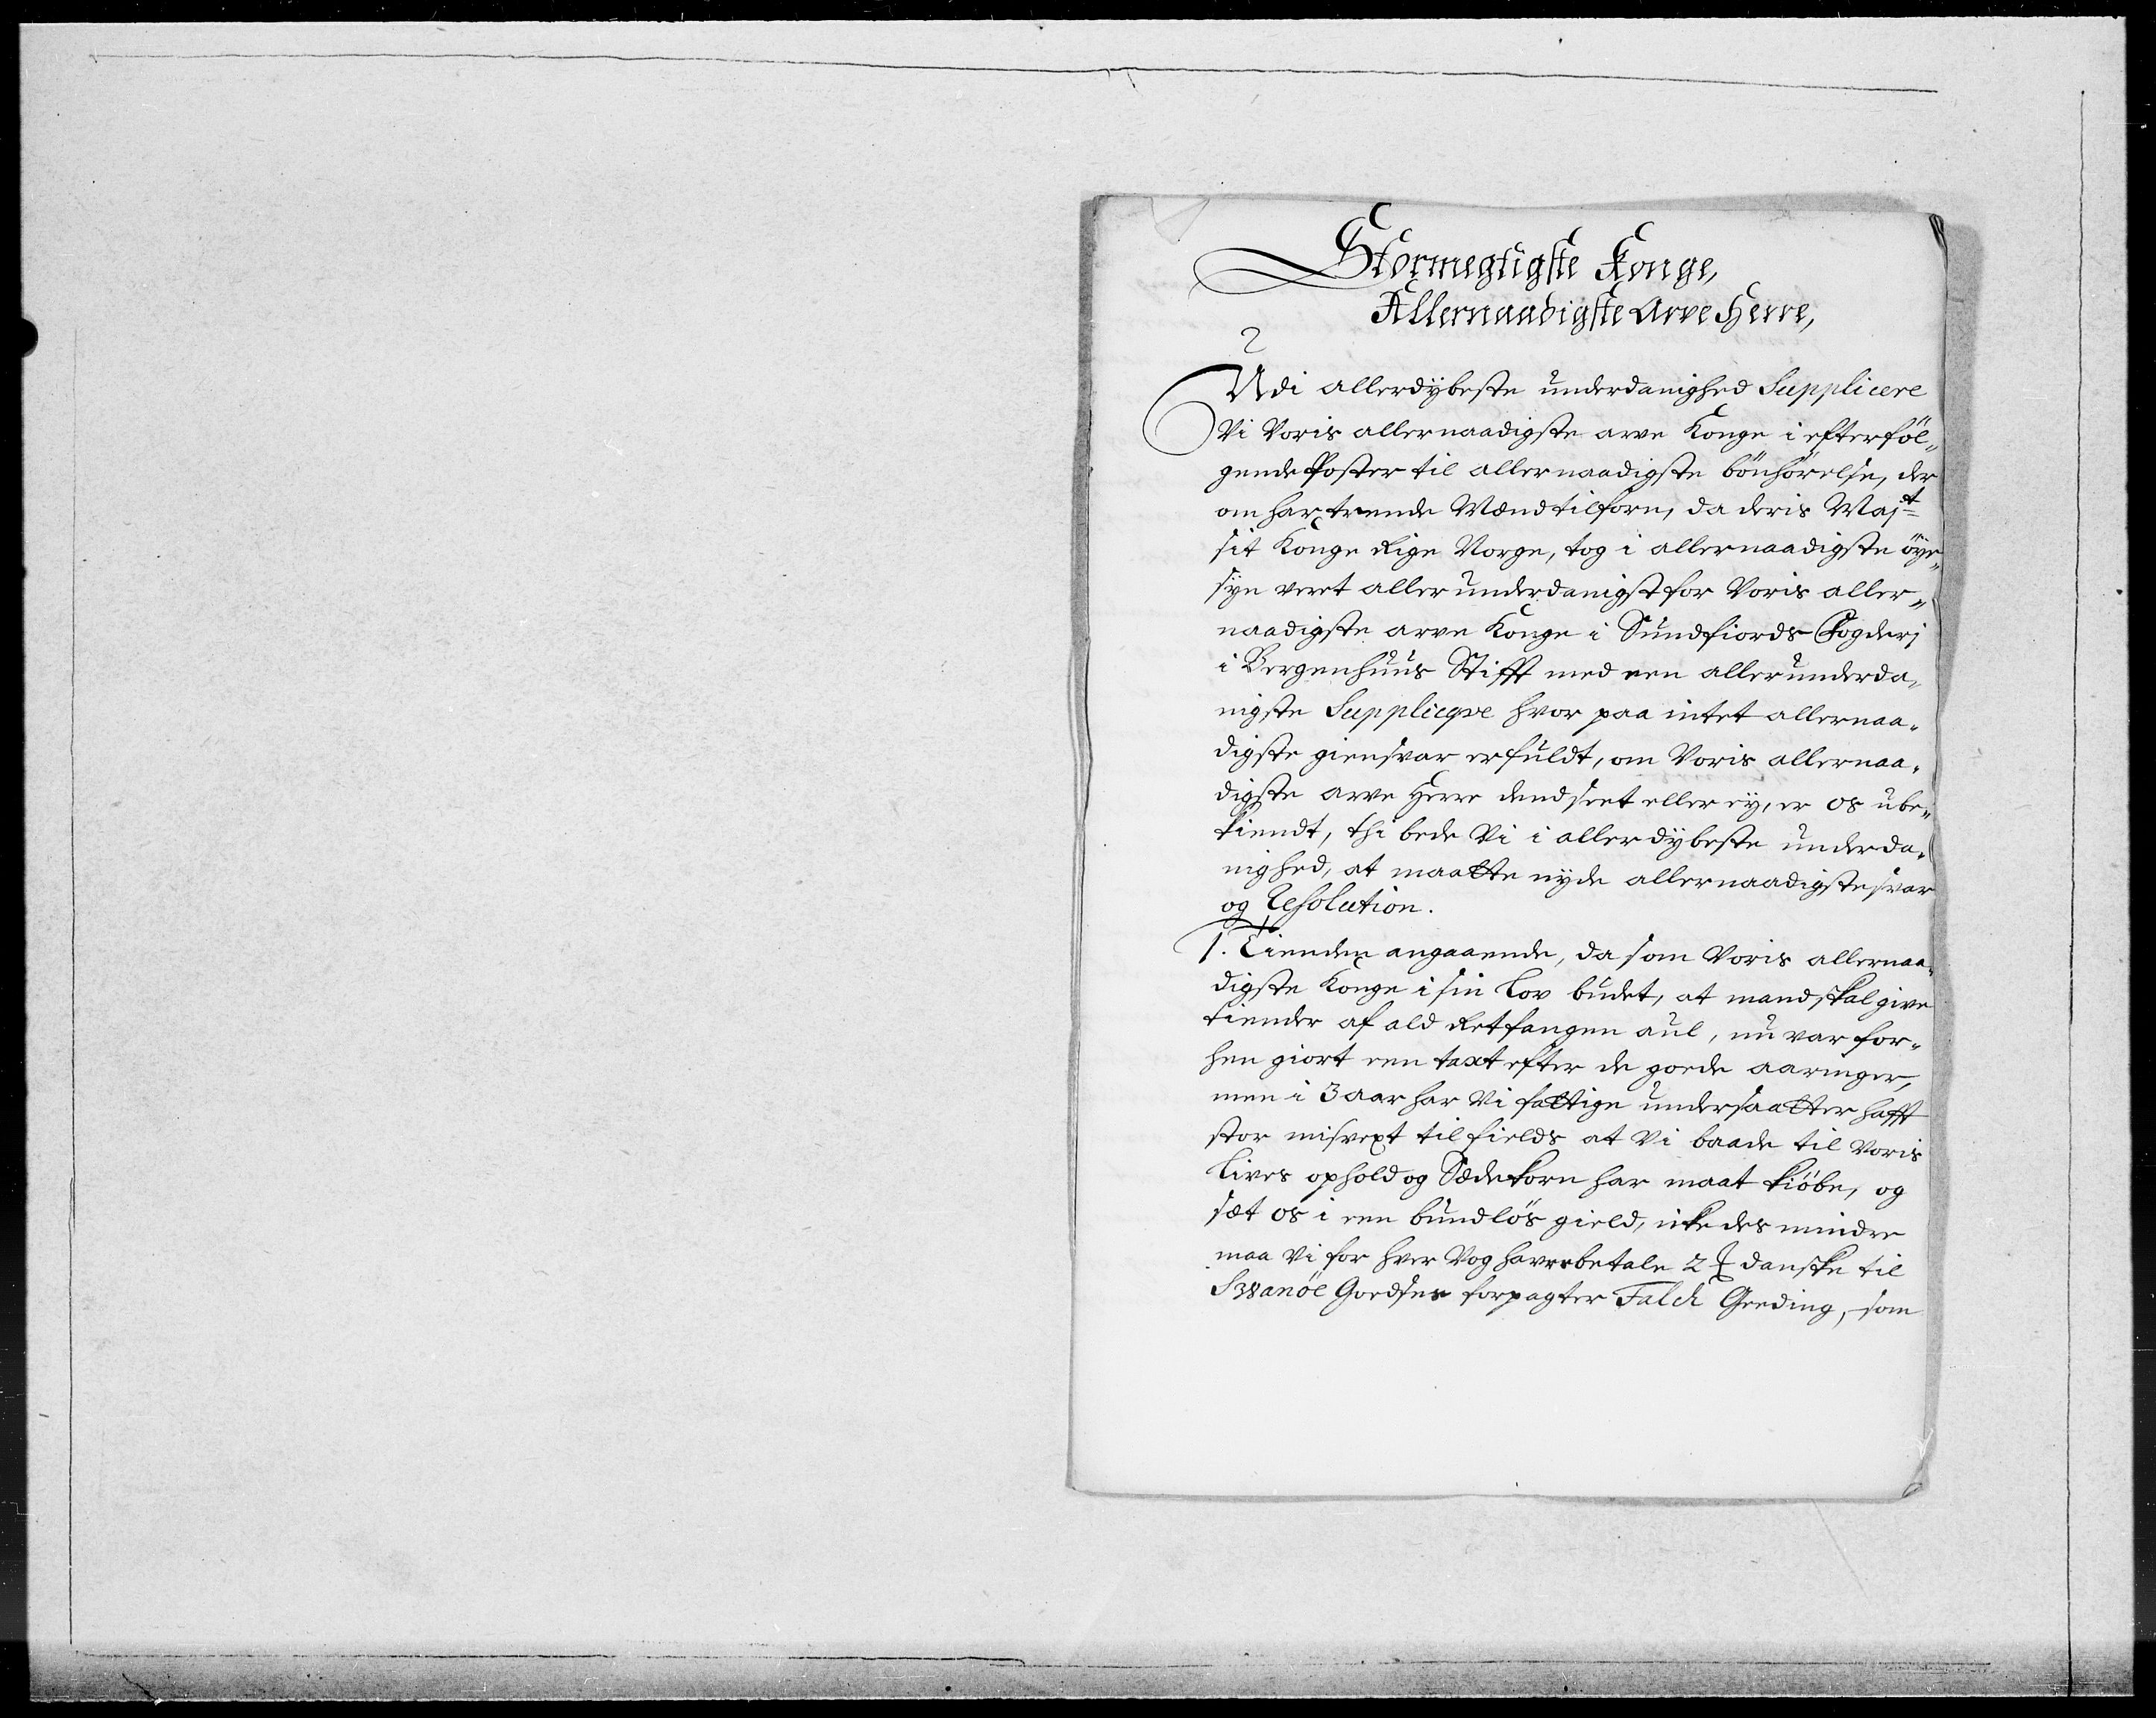 Stormegtigste Konge,
Allernaadigste Arve Herre,
Udi allerdÿbeste underdanighed Supplicere
Vi Voris allernaadigste arve Konge i efterföl„
gende Poster til allernaadigste bönhörelse, der
om har trende Mænd tilforn, da deris Majt
sit Konge Rige Norge, tog i allernaadigste öÿe„
sÿn veret allerunderdanigst for Voris aller„
naadigste arve Konge i Sundfiords Fogderj
i Bergenhuus Stifft med een allerunderda„
nigste Supplicqve hvor paa intet allernaa„
digste giensvar erfuldt, om Voris allernaa„
digste arve Herre dend seet eller eÿ, er os ube„
kiendt, thi bede Vi i allerdÿbeste underda„
nighed, at maatte nÿde allernaadigste svar
og Resolution.
1. Tienden angaaende, da som Voris allernaa„
digste Konge i sin Lov budet, at mand skal give
tiender af ald Retfangen aul, nu var for„
hen giort een taxt efter de goede aaringer,
men i 3 aar har Vi fattige undersaatter hafft
stor misvext til fields at Vi baade til Voris
Lives ophold og Sædekorn har maat kiöbe, og
sæt os i een bundlös gield, icke des mindre
maa Vi for hver Vog havre betale 2 ꝣ danske til
Svanöe Goedses forpagter Falch Greding, som